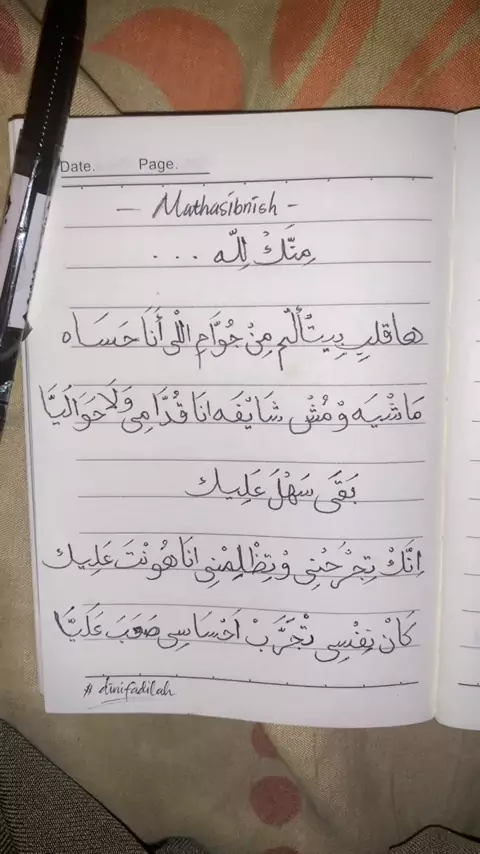 Date. Page.
— Mathasibnish -
مِنَّكْ لِلّه ...
هاقلبِ بِيتْألّم مِنْ جُوَّامِ الْلى أنَا حَسَاه
مَاشْيَه وْمُشْ شَايْفَه انَا قُدَّامِى وَلَا حَوَالَيَّا
بَقَى سَهْلَ عَلِيك
اِنَّكْ تِجْرَحْنِى وْتِظْلِمْنِى انَا هُونْتَ عَلِيك
كَانْ نِفْسِى تْجَرَّبْ اَحْسَاسِى صَعَبَ عَلَيَّا
# dinifadilah